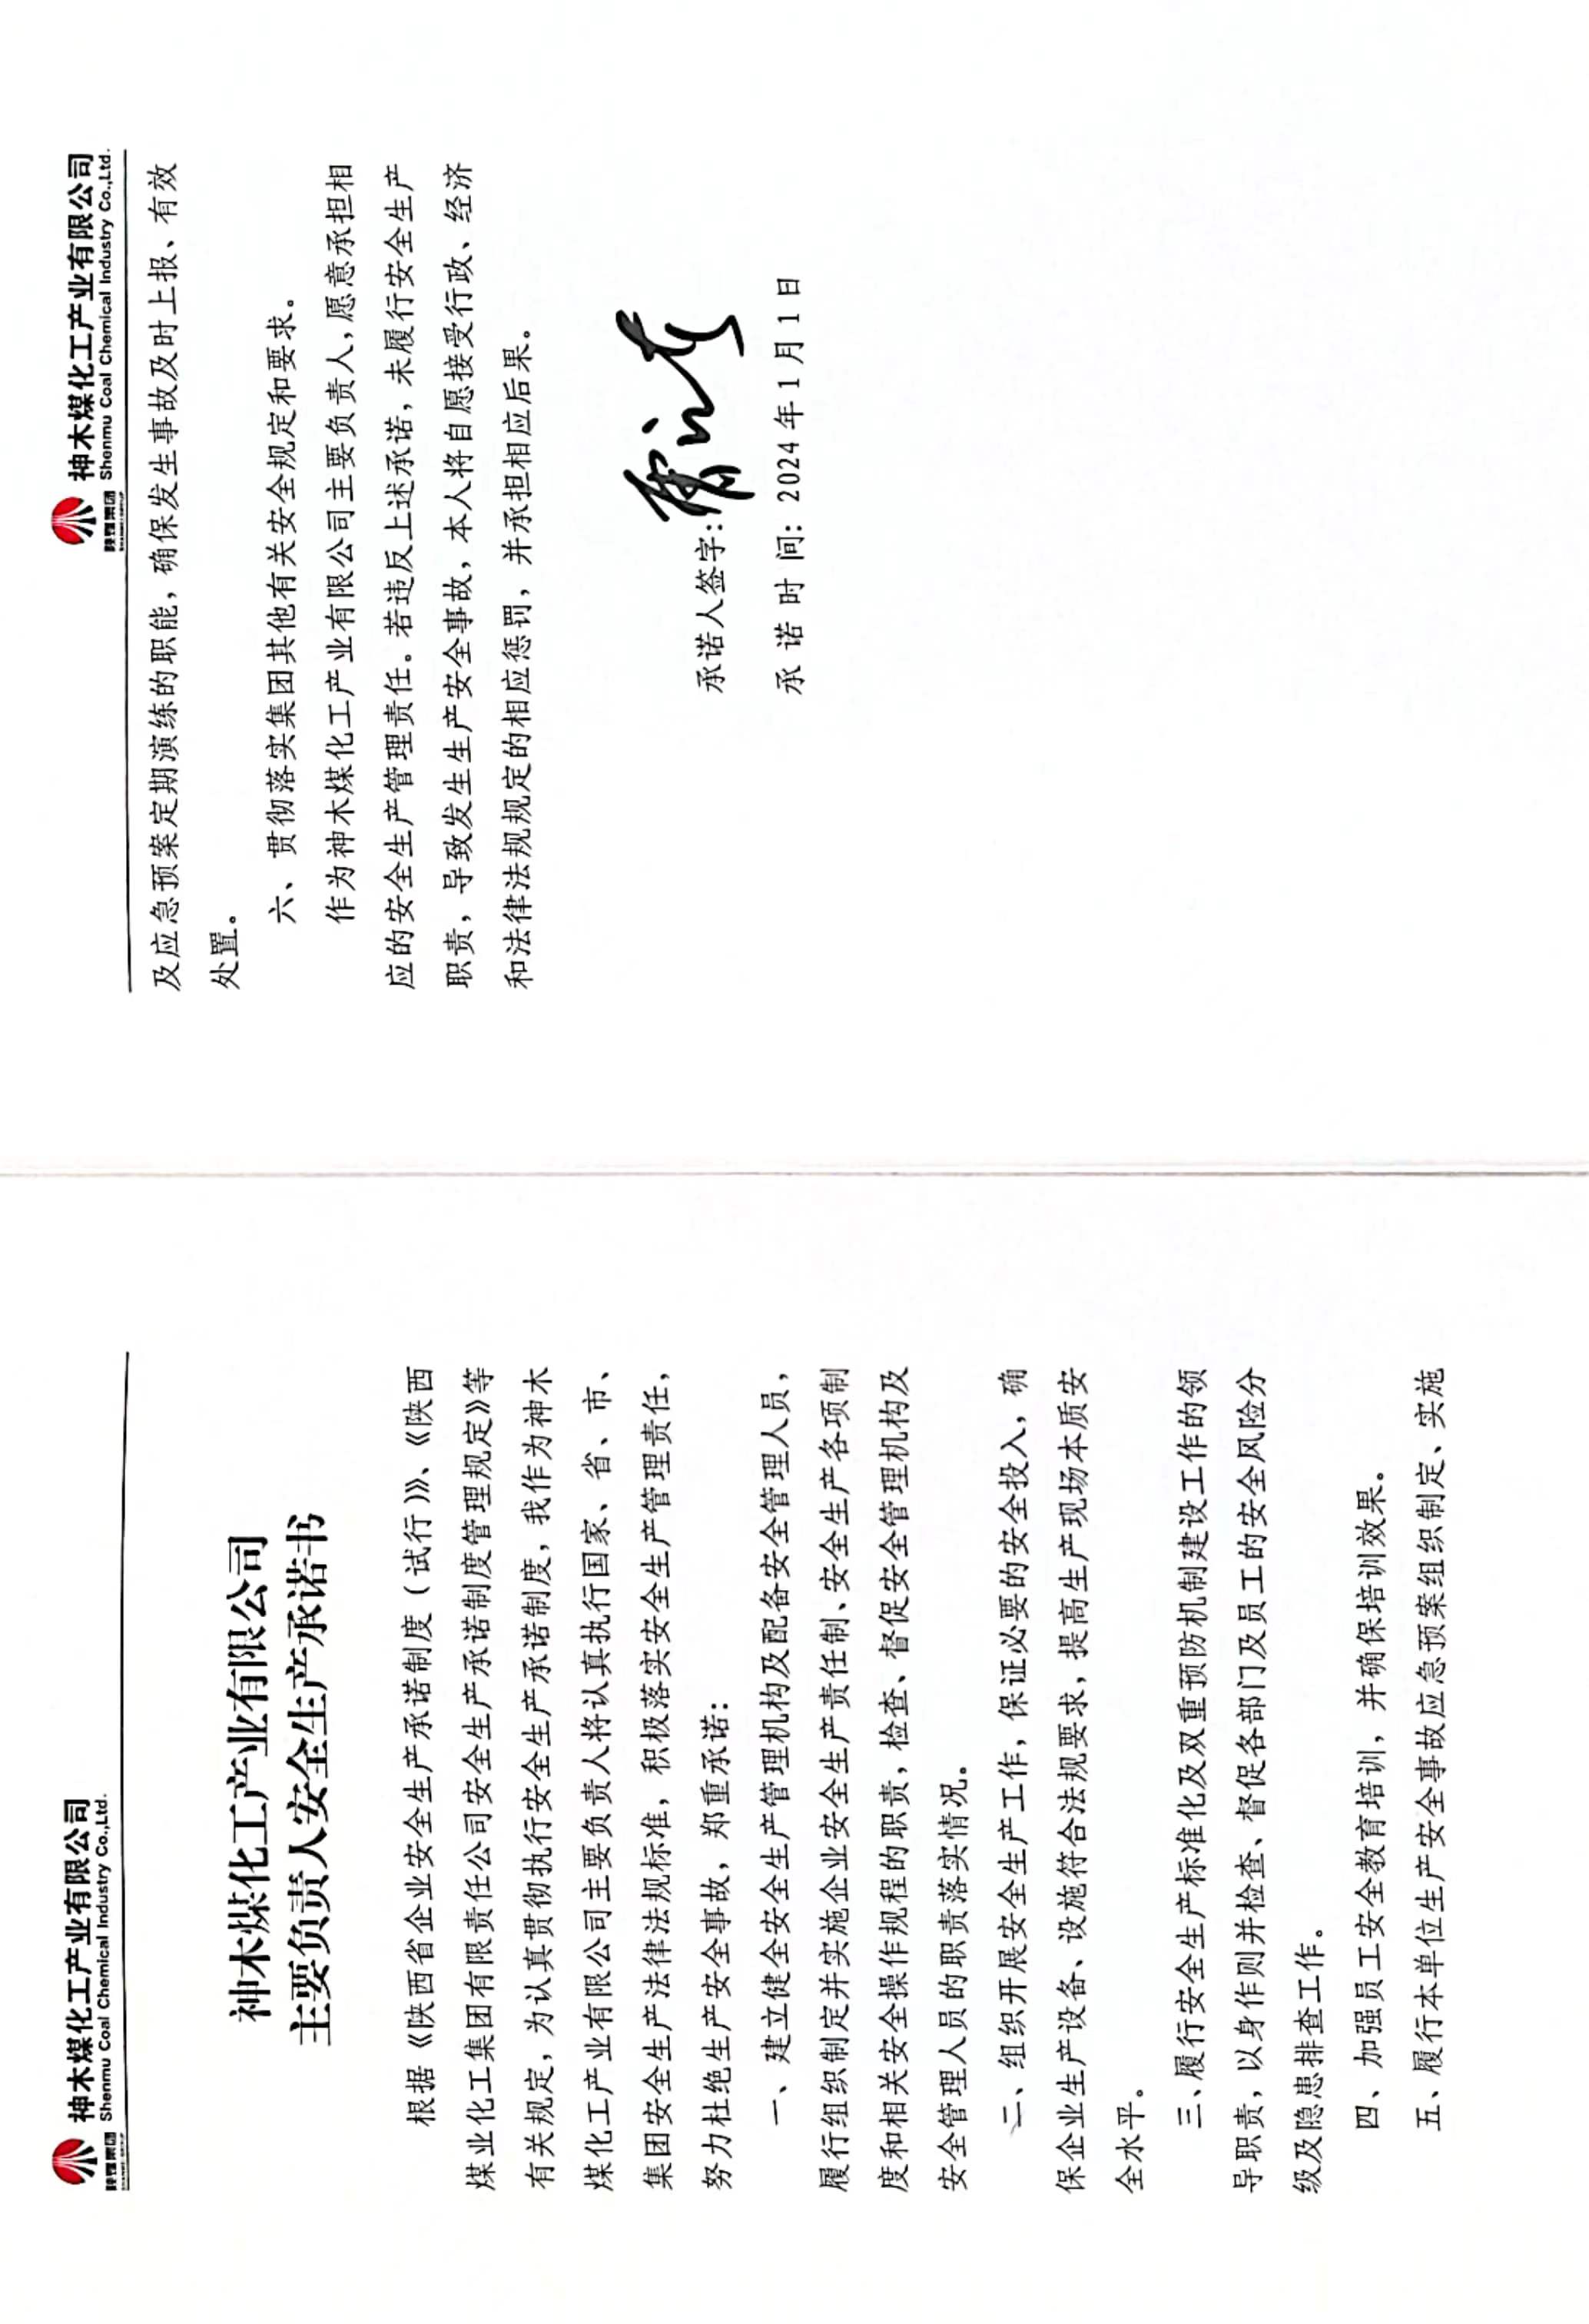 陕煤集团
神木煤化工产业有限公司
Shenmu Coal Chemical Industry Co.,Ltd.
神木煤化工产业有限公司
主要负责人安全生产承诺书
根据《陕西省企业安全生产承诺制度（试行）》、《陕西
煤业化工集团有限责任公司安全生产承诺制度管理规定》等
有关规定，为认真贯彻执行安全生产承诺制度，我作为神木
煤化工产业有限公司主要负责人将认真执行国家、省、市、
集团安全生产法律法规标准，积极落实安全生产管理责任，
努力杜绝生产安全事故，郑重承诺：
一、建立健全安全生产管理机构及配备安全管理人员，
履行组织制定并实施企业安全生产责任制、安全生产各项制
度和相关安全操作规程的职责，检查、督促安全管理机构及
安全管理人员的职责落实情况。
二、组织开展安全生产工作，保证必要的安全投入，确
保企业生产设备、设施符合法规要求，提高生产现场本质安
全水平。
三、履行安全生产标准化及双重预防机制建设工作的领
导职责，以身作则并检查、督促各部门及员工的安全风险分
级及隐患排查工作。
四、加强员工安全教育培训，并确保培训效果。
五、履行本单位生产安全事故应急预案组织制定、实施
陕煤集团
神木煤化工产业有限公司
Shenmu Coal Chemical Industry Co.,Ltd.
及应急预案定期演练的职能，确保发生事故及时上报、有效
处置。
六、贯彻落实集团其他有关安全规定和要求。
作为神木煤化工产业有限公司主要负责人，愿意承担相
应的安全生产管理责任。若违反上述承诺，未履行安全生产
职责，导致发生生产安全事故，本人将自愿接受行政、经济
和法律法规规定的相应惩罚，并承担相应后果。
承诺人签字：
承 诺 时 间：2024 年 1 月 1 日